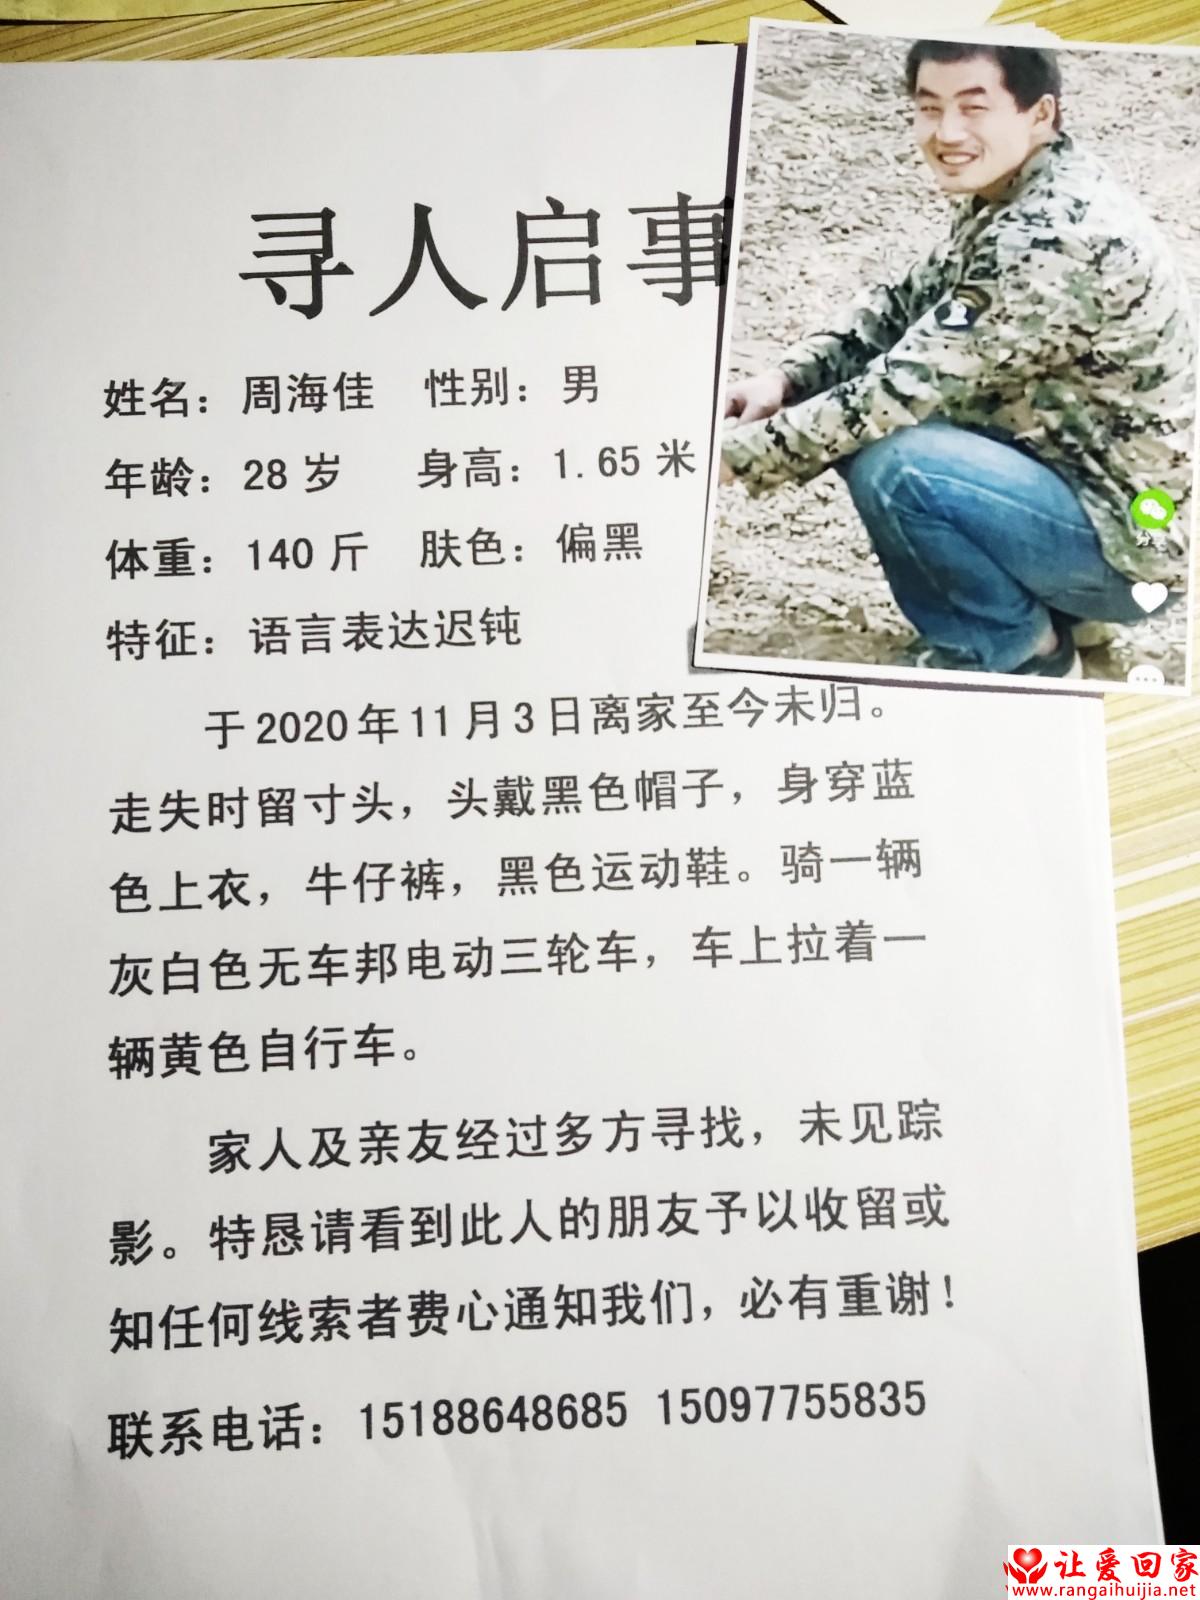 寻人启事
姓名：周海佳 性别：男
年龄：28 岁 身高：1.65 米
体重：140 斤 肤色：偏黑
特征：语言表达迟钝
于2020年11月3日离家至今未归。
走失时留寸头，头戴黑色帽子，身穿蓝
色上衣，牛仔裤，黑色运动鞋。骑一辆
灰白色无车邦电动三轮车，车上拉着一
辆黄色自行车。
家人及亲友经过多方寻找，未见踪
影。特恳请看到此人的朋友予以收留或
知任何线索者费心通知我们，必有重谢！
联系电话：15188648685 15097755835
分享
让爱回家
www.rangaihuijia.net